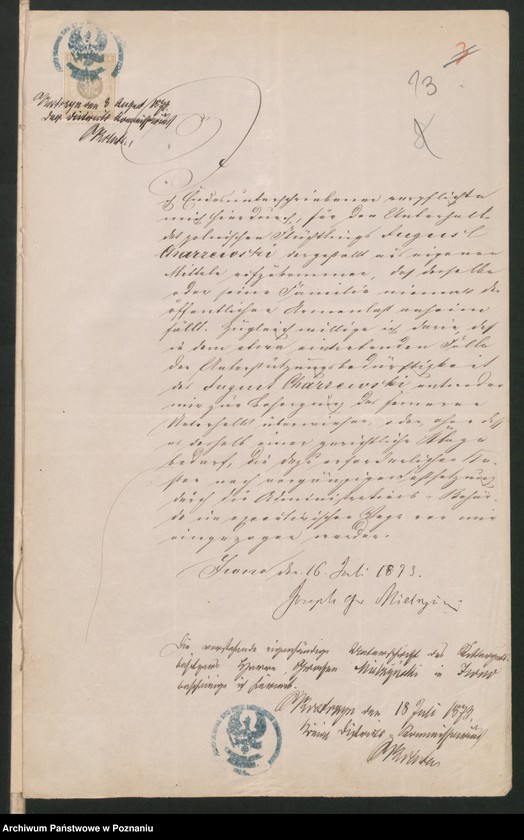 13
Kostrzyn den 3 August 1873
Der Districts Commissarius
Ich Endesunterschriebener verpflichte
mich hierdurch, für den Unterhalt
des polnischen Flüchtlings August
Charzewski dergestalt aus eigenen
Mitteln aufzukommen, daß derselbe
oder seine Familie niemals der
öffentlichen Armenlast anheim
fällt. Zugleich willige ich darin, daß
in dem etwa eintretenden Falle
der Unterstützungsbedürftigkeit
des August Charzewski entweder
mir zur Besorgung des ferneren
Unterhalts überwiesen, oder ohne daß
es deshalb einer gerichtlichen Klage
bedarf, die dazu erforderlichen Ko-
sten nach vorgängiger Festsetzung
durch die Administrations-Behör-
de im executivischen Wege von mir
eingezogen werden.
Iwno den 16. Juli 1873.
Joseph Gr Mielzynski
Die vorstehende eigenhändige Unterschrift des
besitzers Herrn Grafen Mielzynski in Iwno
bescheinige ich hiermit.
Kostrzyn den 18 Juli 1873.
Königl Districts Commissarius
Archiwum Państwowe w Poznaniu